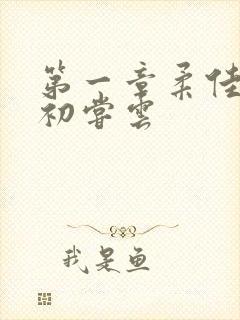 第一章柔佳
初尝云
我是鱼